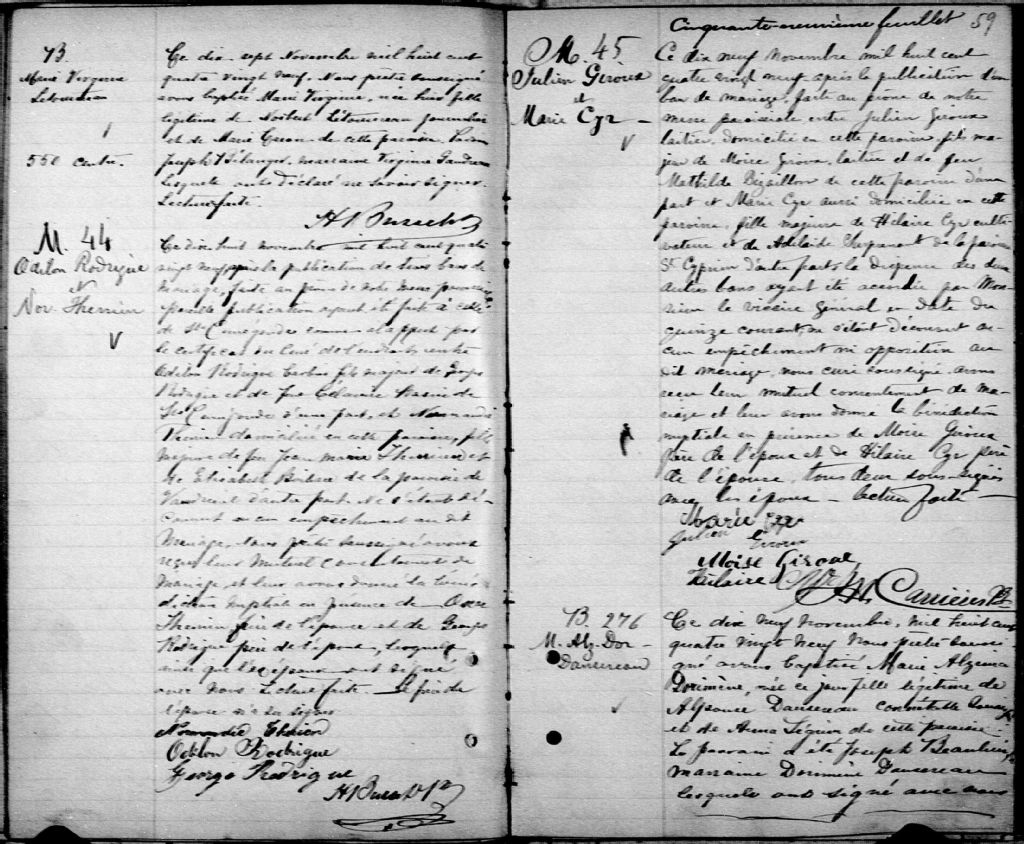 B.
Marie Virginie
Létourneau
550 centr.
Ce dix sept Novembre mil huit cent
quatre vingt neuf, Nous prêtre soussigné
avons baptisé Marie Virginie, née hier fille
légitime de Norbert Létourneau journalier
et de Marie de cette paroisse. Parrain
Joseph Bélanger, marraine Virginie
lesquels ont déclaré ne savoir signer.
Lecture faite.
M. 44
Odilon Rodrigue
et
Nor. Therrien
Ce dix huit novembre mil huit cent quatre
vingt neuf, après la publication de trois bans de
mariage, faite au prône de notre messe paroissiale
pareille publication ayant été faite à celle
de Ste Cunégonde comme il appert par
le certificat du Curé de l'endroit, entre
Odilon Rodrigue fils majeur de George
Rodrigue et de feue de
Ste Cunégonde d'une part, et
domiciliée en cette paroisse, fille
majeure de feu Jean Marie Therrien et
de Elisabeth de la paroisse de
Vaudreuil d'autre part. Ne s'étant dé-
couvert aucun empêchement au dit
Mariage, Nous prêtre soussigné avons
reçu leur mutuel consentement de
Mariage, et leur avons donné la béné-
diction nuptiale en présence de
Therrien frère de l'épouse et de George
Rodrigue père de l'époux, lesquels
ainsi que les époux ont signé
avec nous. Lecture faite. Le frère de
l'épouse n'a su signer
Odilon Rodrigue
George Rodrigue
Cinquante-neuvième feuillet 59
M. 45.
Julien Giroux
et
Marie Cyr
Ce dix neuf Novembre mil huit cent
quatre vingt neuf après la publication d'un
ban de mariage, faite au prône de notre
messe paroissiale entre Julien Giroux
laitier, domicilié en cette paroisse, fils ma-
jeur de Moise Giroux, laitier et de feu
Mathilde Bisaillon de cette paroisse d'une
part et Marie Cyr aussi domiciliée en cette
paroisse, fille majeure de Hilaire Cyr culti-
vateur et de Adelaide de la paroisse
St. Cyprien d'autre part; la dispense des deux
autres bans ayant été accordée par Mon-
sieur le vicaire Général en date du
quinze courant, ne s'étant découvert au-
cun empêchement ni opposition au
dit mariage, nous curé soussigné avons
reçu leur mutuel consentement de ma-
riage et leur avons donné la bénédiction
nuptiale en présence de Moise Giroux
père de l'époux et de Hilaire Cyr père
de l'épouse, tous deux sous-signés
avec les époux - lecture faite -
Marie Cyr
Julien Giroux
Moise Giroux
Hilaire Cyr
B. 276
M. Alz. Dor-
Dansereau
Ce dix neuf Novembre, mil huit cent
quatre vingt neuf Nous prêtre soussi-
gné avons baptisé Marie Alzéma
Dorimène, née ce jour fille légitime de
Alphonse Dansereau
et de Anna Séguin de cette paroisse.
Le parrain a été Joseph Beaulieu
marraine Dorimène Dansereau
lesquels ont signé avec nous